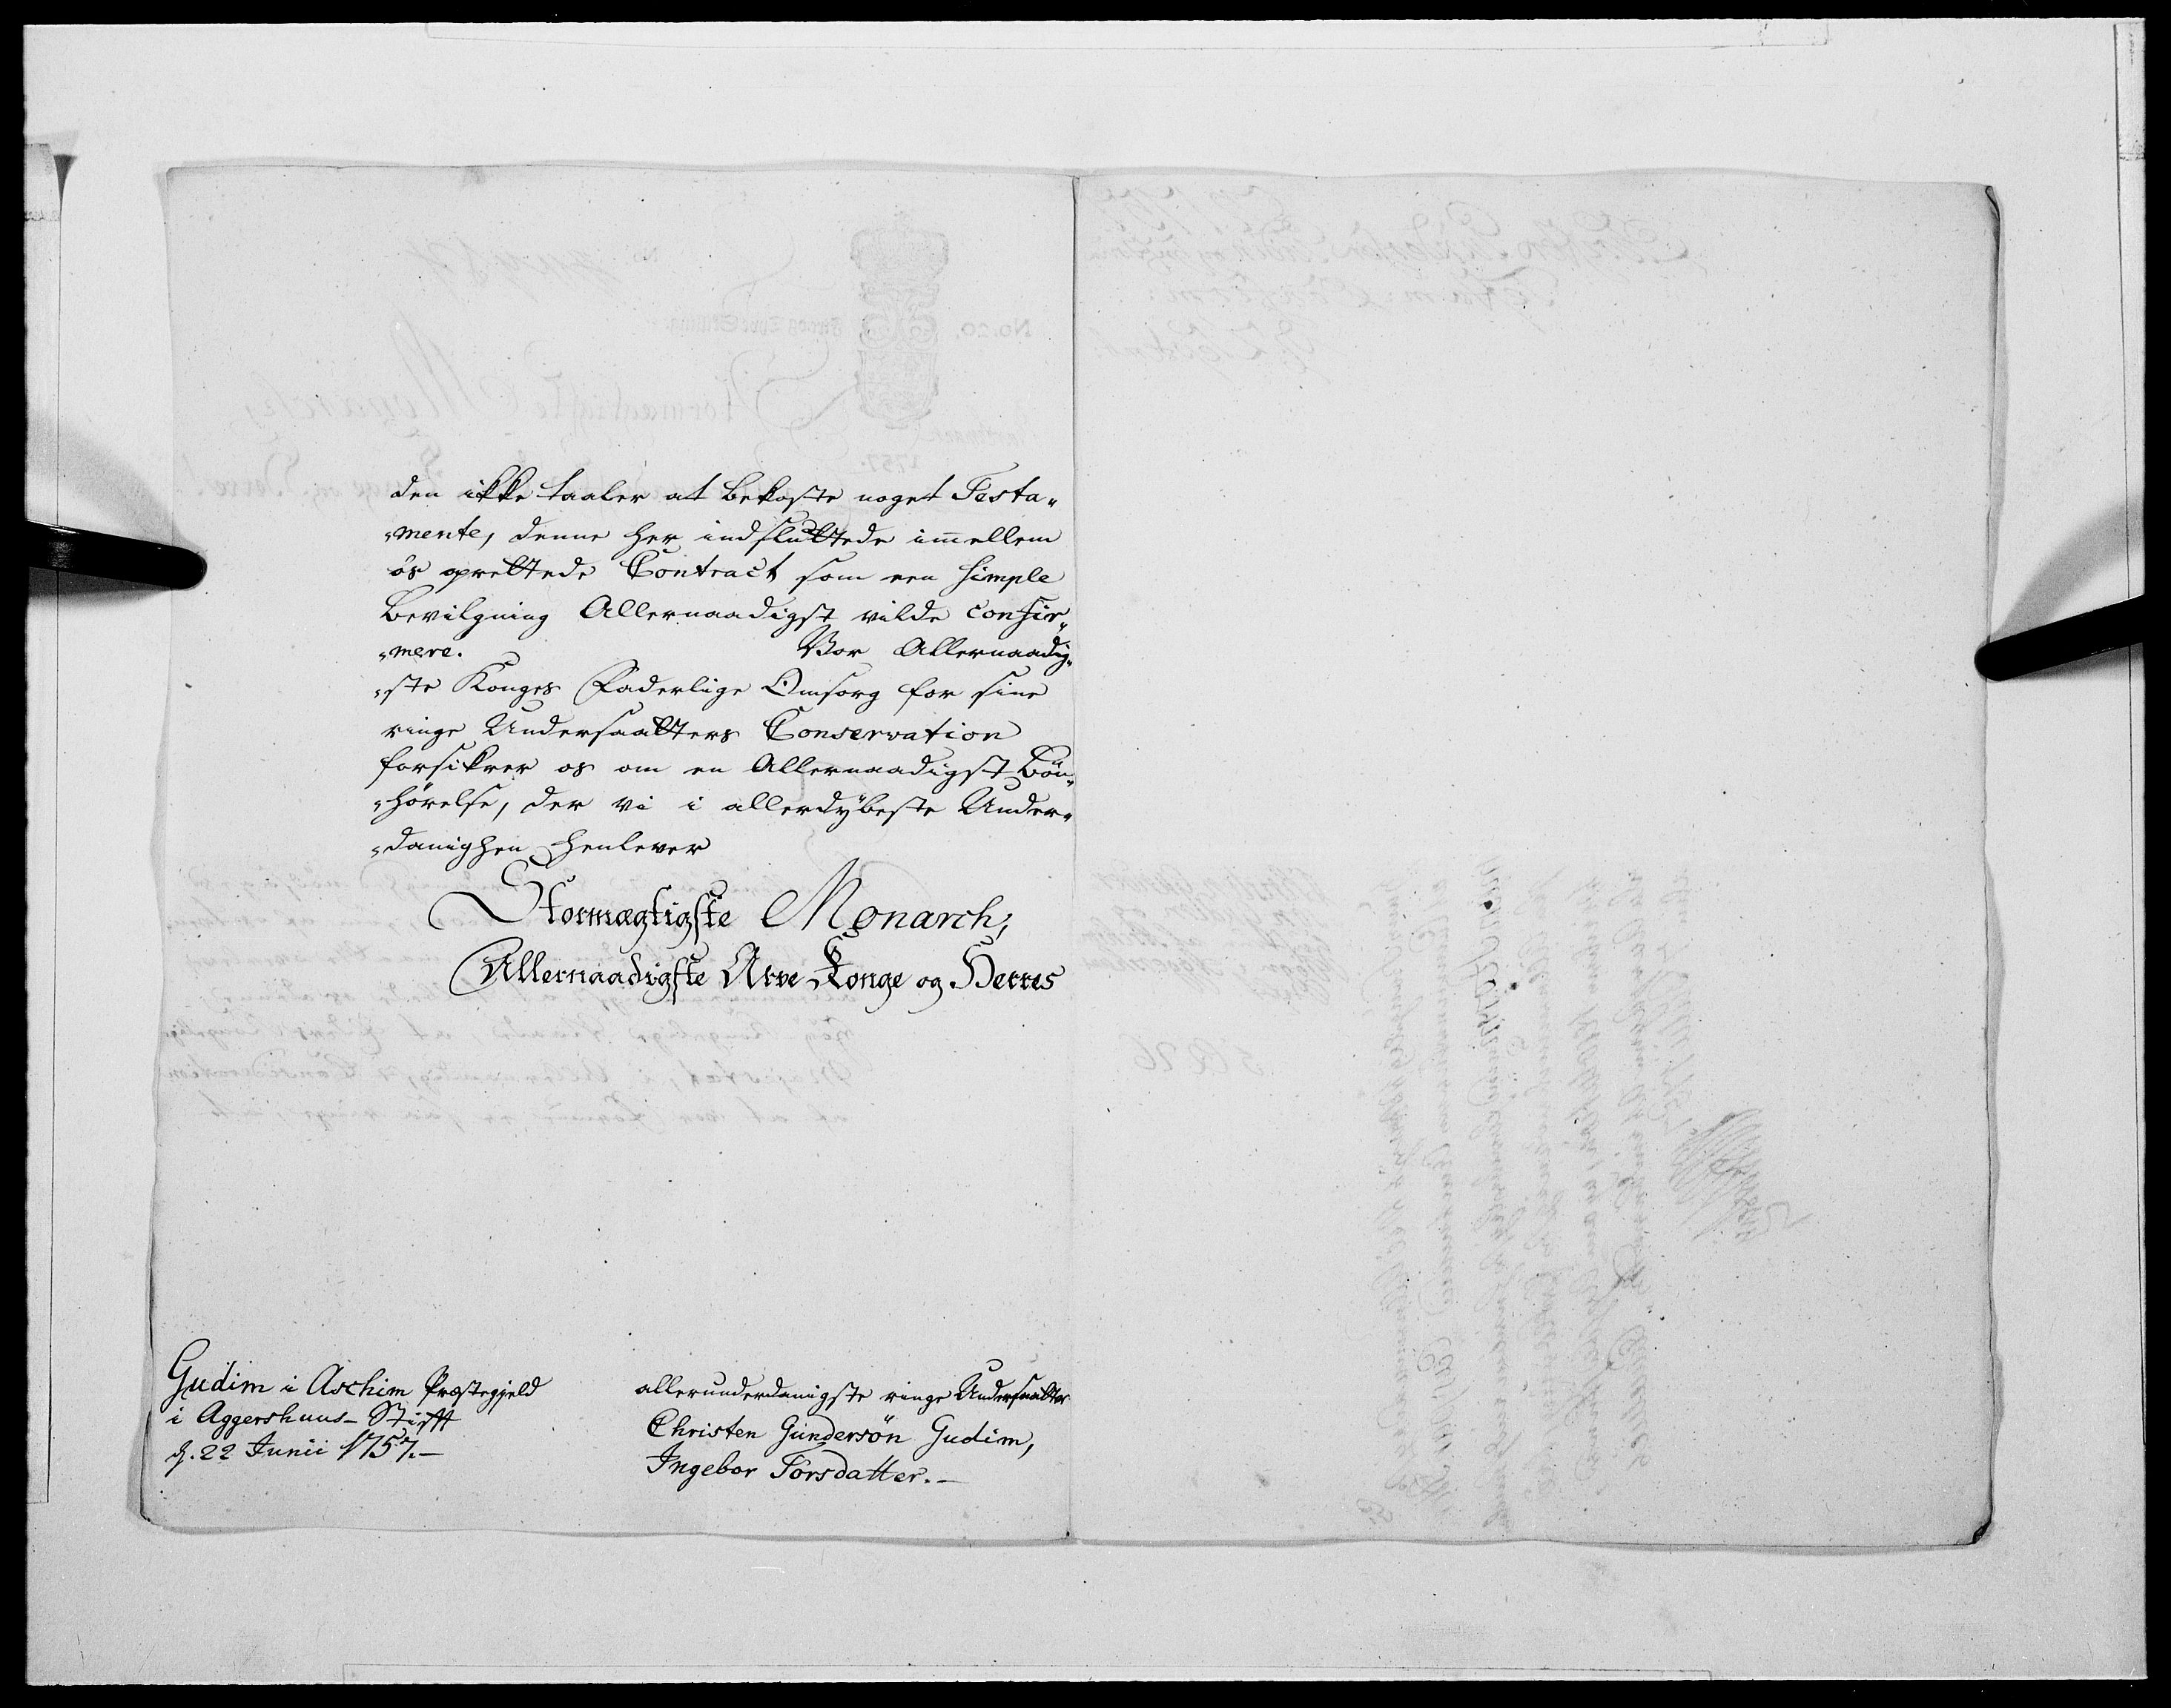 den ikke taaler at bekoste noget Testa„
„mente, denne her indsluttede immellem
os oprettede Contract som een simple
Bevilgning Allernaadigst vilde confir„
„mere. Vor Allernaadig„
„ste Konges Faderlige Omsorg for sine
ringe Undersaatters Conservation
forsikrer os om en Allernaadigst Bön„
„hörelse, der vi i allerdÿbeste Under„
„danighen henlever
Stormægtigste Monarch,
Allernaadigste Arve Konge og Herres
Gudim i Aschim Præstegjeld
i Aggershuus-Stifft
d. 22 Junii 1757.-
allerunderdanigste ringe Undersaatter
Christen Gundersön Gudim,
Ingebor Torsdatter.-